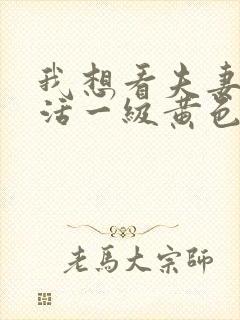 我想看夫妻
活一级黄色
老馬大宗師